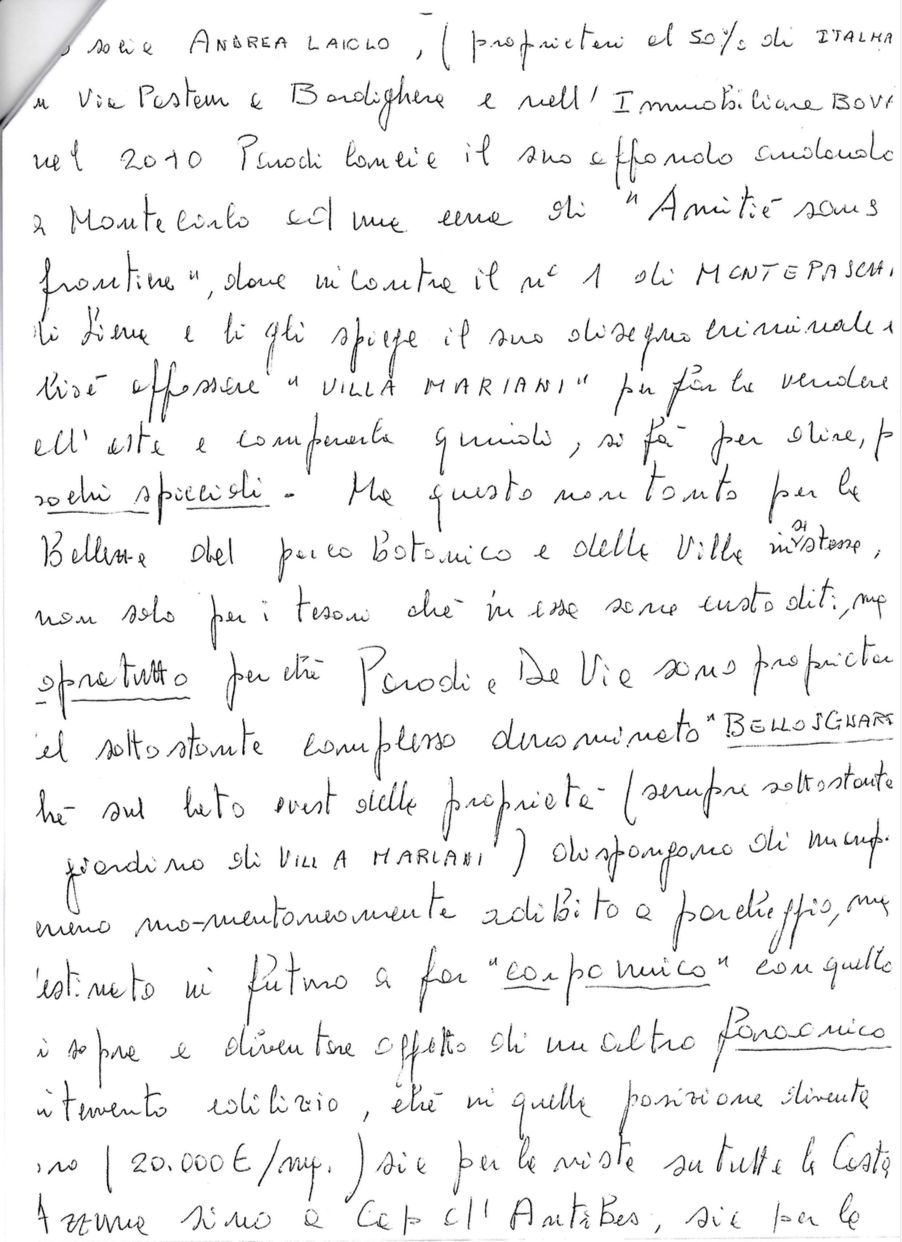 socio ANDREA LAIOLO, ( proprietari al 50% di ITALMA
Via Pasteur a Bordighera e nell' Immobiliare BOVA
nel 2010 Parodi lancia il suo affondo andando
a Montecarlo ad una cena di "Amitié sans
frontière", dove incontra il n° 1 di MONTEPASCHI
di Siena e lì gli spiega il suo disegno criminale
affossare "VILLA MARIANI" per farla vendere
all'asta e comperarla quindi, si fà per dire, p
ochi spiccioli. Ma questo non tanto per la
Bellezza del parco Botanico e della Villa in sè stessa,
non solo per i tesori che in essa sono custoditi, ma
opratutto perchè Parodi e De Via sono proprietar
el sottostante complesso denominato "BELLOSGUARD
hè sul lato ovest della proprietà (sempre sottostante
giardino di VILLA MARIANI) dispongono di un amp.
erreno mo-mentaneamente adibito a parcheggio, ma
estinato in futuro a far "corpo unico" con quello
i sopra e diventare oggetto di un altro faraonico
ntervento edilizio, chè in quella posizione diventa
oro (20.000 € /mq.) sia per la vista su tutta la Costa
Azzurra sino a Cap d'Antibes, sia per la